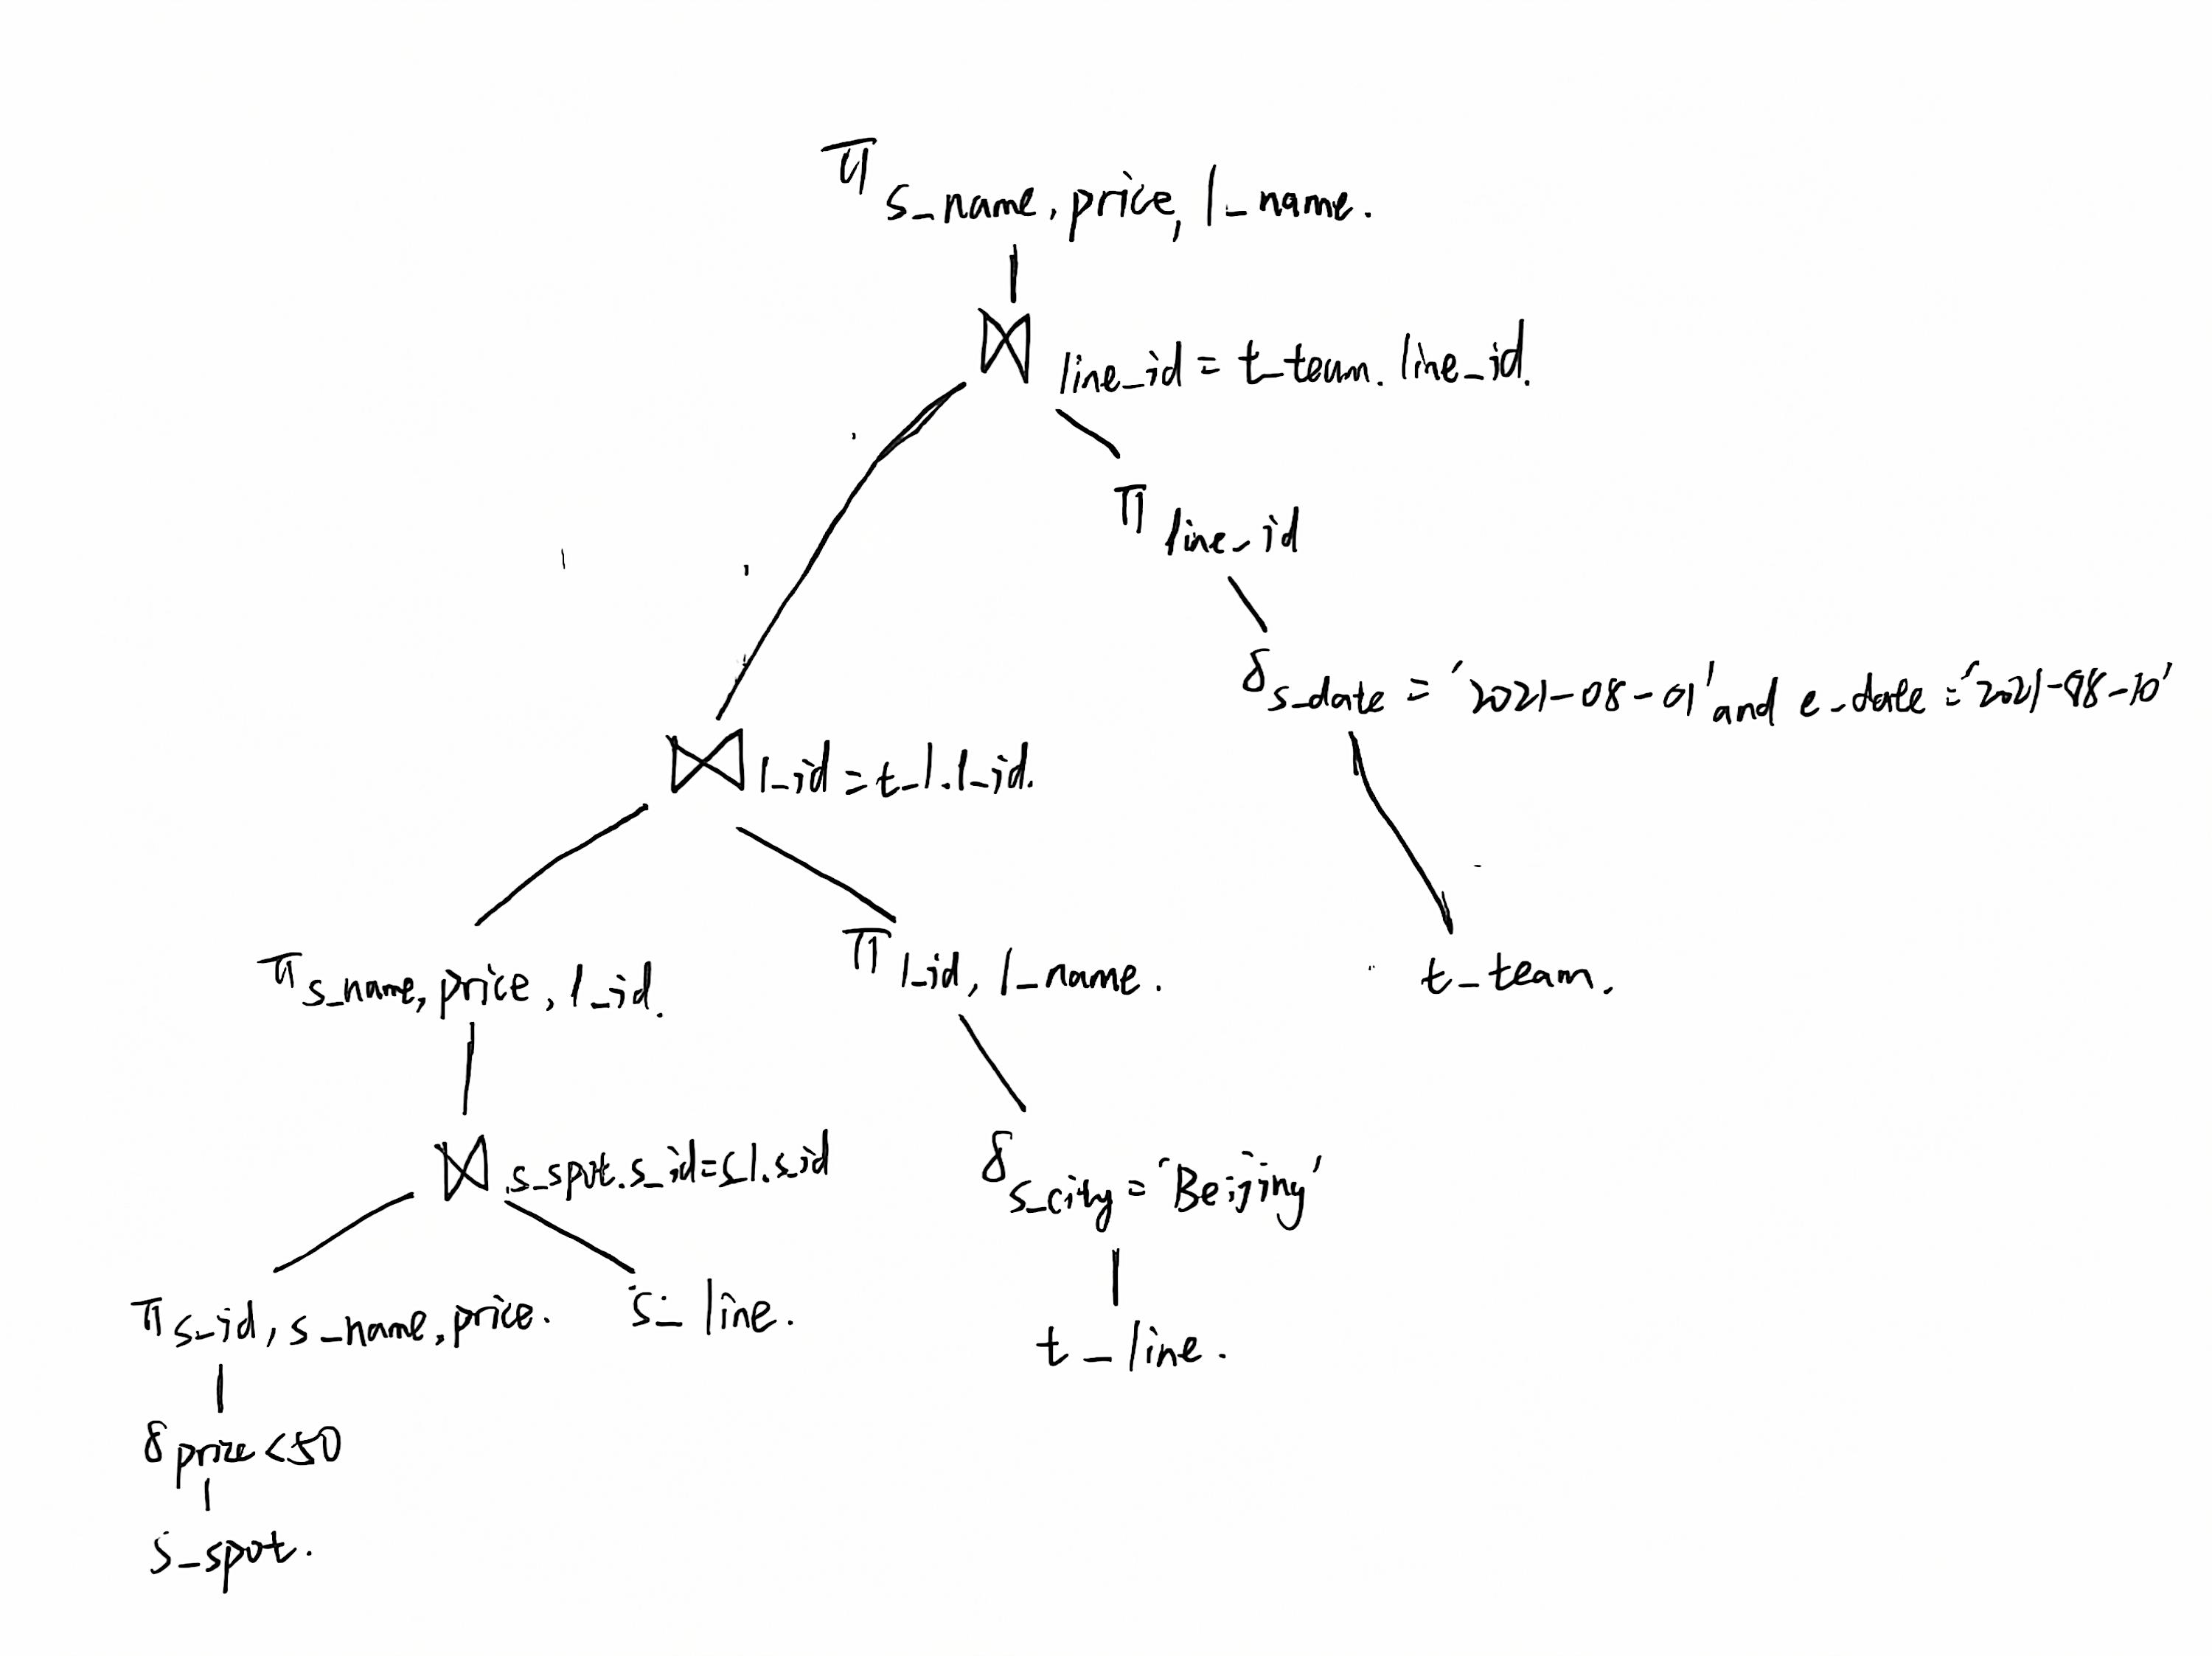 π s_name, price, l_name.
⋈ line_id = t_team. line_id.
π line_id
δ s_date = '2021-08-01' and e_date = '2021-08-10'
⋈ l_id = t_l.l_id.
π s_name, price, l_id.
π l_id, l_name.
t_team.
⋈ s_spot.s_id=s_l.s_id
δ s_city = 'Beijing'
π s_id, s_name, price.
s_line.
t_line.
δ price <50
s_spot.